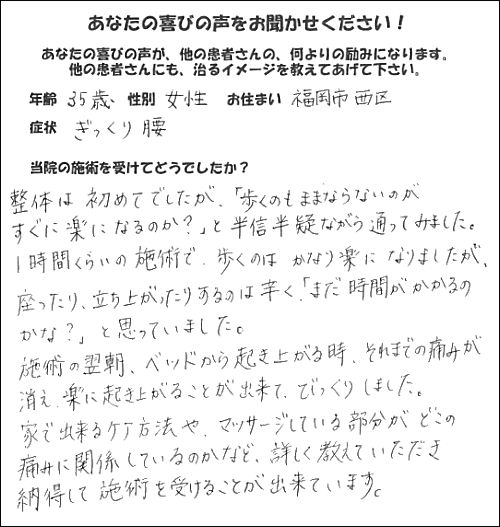 あなたの喜びの声をお聞かせください！
あなたの喜びの声が、他の患者さんの、何よりの励みになります。
他の患者さんにも、治るイメージを教えてあげて下さい。
年齢 35歳 性別 女性 お住まい 福岡市西区
症状 ぎっくり腰
当院の施術を受けてどうでしたか？
整体は初めてでしたが、「歩くのもままならないのが
すぐに楽になるのか？」と半信半疑ながら通ってみました。
1時間くらいの施術で、歩くのはかなり楽になりましたが、
座ったり、立ち上がったりするのは辛く、「まだ時間がかかるの
かな？」と思っていました。
施術の翌朝、ベッドから起き上がる時、それまでの痛みが
消え、楽に起き上がることが出来て、びっくりしました。
家で出来るケア方法や、マッサージしている部分がどこの
痛みに関係しているのかなど、詳しく教えていただき
納得して施術を受けることが出来ています。